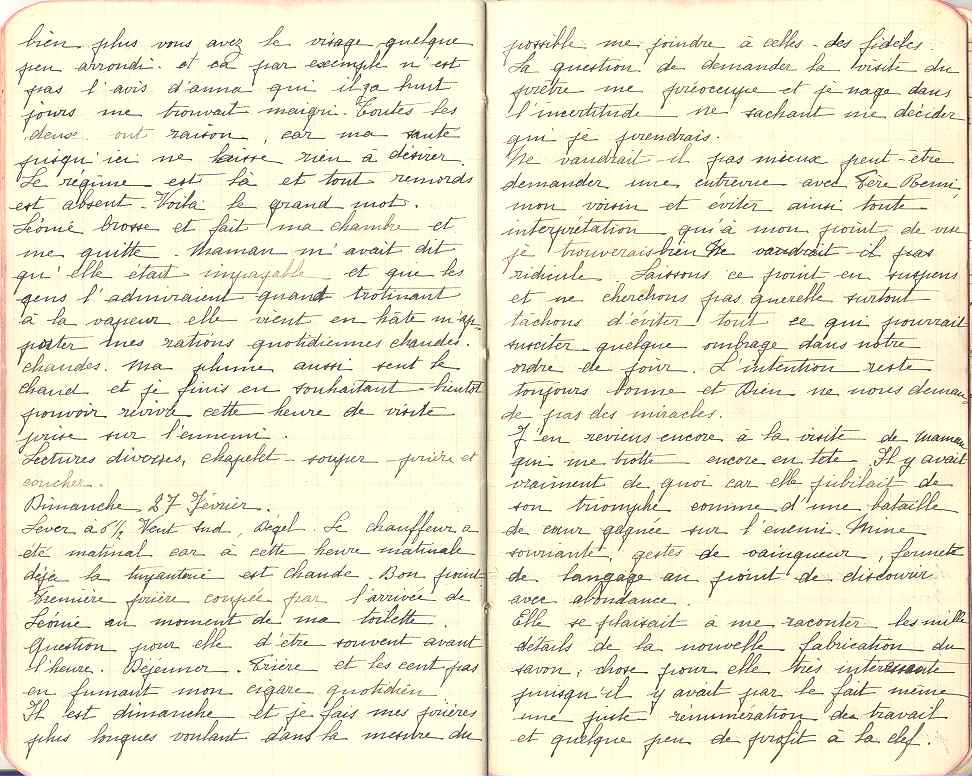 bien plus vous avez le visage quelque
peu arrondi. et ça par exemple n'est
pas l'avis d'anna qui il ya huit
jours me trouvait maigri. Toutes les
deux ont raison, car ma santé
jusqu'ici ne laisse rien à désirer.
Le régime est là et tout remords
est absent. Voilà le grand mot.
Léonie brosse et fait ma chambre et
me quitte. Maman m'avait dit
qu'elle était impayable et que les
gens l'admiraient quand trotinant
à la vapeur elle vient en hâte m'ap-
porter mes rations quotidiennes chaudes.
chaudes. Ma plume aussi sent le
chaud et je finis en souhaitant bientôt
pouvoir revivre cette heure de visite
prise sur l'ennemi.
Lectures diverses, chapelet - souper - prière et
coucher.
Dimanche 27 Février.
Lever a 6 1/2 Vent sud, Dégel. Le chauffeur a
été matinal car à cette heure matinale
déjà la tuyauterie est chaude. Bon point
Première prière coupée par l'arrivée de
Léonie au moment de ma toilette.
Question pour elle d'être souvent avant
l'heure. Déjeuner. Prière et les cent pas
en fumant mon cigare quotidien
Il est dimanche et je fais mes prières
plus longues voulant dans la mesure du
possible me joindre à celles des fidèles.
La question de demander la visite du
prêtre me préoccupe et je nage dans
l'incertitude ne sachant me décider
qui je prendrais.
Ne vaudrait-il pas mieux peut-être
demander une entrevue avec Père Remi,
mon voisin et éviter ainsi toute
interprétation qui à mon point de vue
je trouverais bien Ne vaudrait-il pas
ridicule Laissons ce point en suspens
et ne cherchons pas querelle surtout
tâchons d'éviter tout ce qui pourrait
susciter quelque ombrage dans notre
ordre de jour. L'intention reste
toujours bonne et Dieu ne nous deman-
de pas des miracles.
J'en reviens encore à la visite de maman
qui me trotte encore en tête. Il y avait
vraiment de quoi car elle jubilait de
son triomphe comme d'une bataille
de cœur gagnée sur l'enemi. Mine
souriante, gestes de vainqueur, fermeté
de langage au point de discourir
avec abondance.
Elle se plaisait à me raconter les mille
détails de la nouvelle fabrication du
savon, chose pour elle très interessante
puisqu'il y avait par le fait même
une juste rémunération de travail
et quelque peu de profit à la clef.